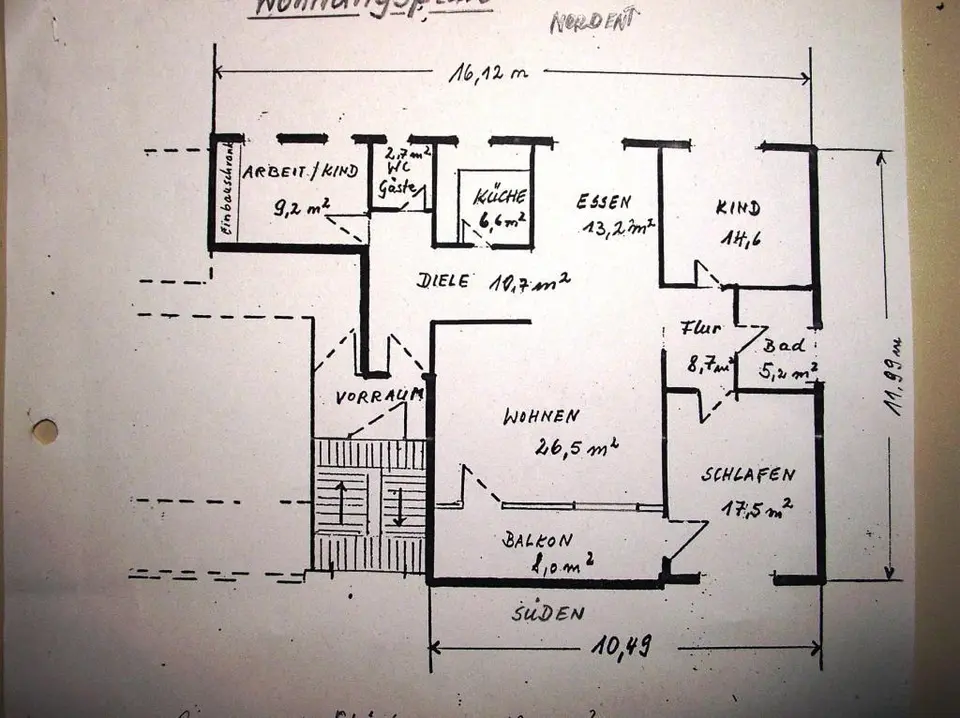 Wohnungsplan
NORDEN
16,12 m
Einbauschrank
ARBEIT/KIND
9,2 m²
2,7 m²
WC
Gäste
KÜCHE
6,6 m²
ESSEN
13,2 m²
KIND
14,6
DIELE 10,7 m²
Flur
8,7 m²
Bad
5,2 m²
11,99 m
VORRAUM
WOHNEN
26,5 m²
SCHLAFEN
17,5 m²
BALKON
8,0 m²
SÜDEN
10,49